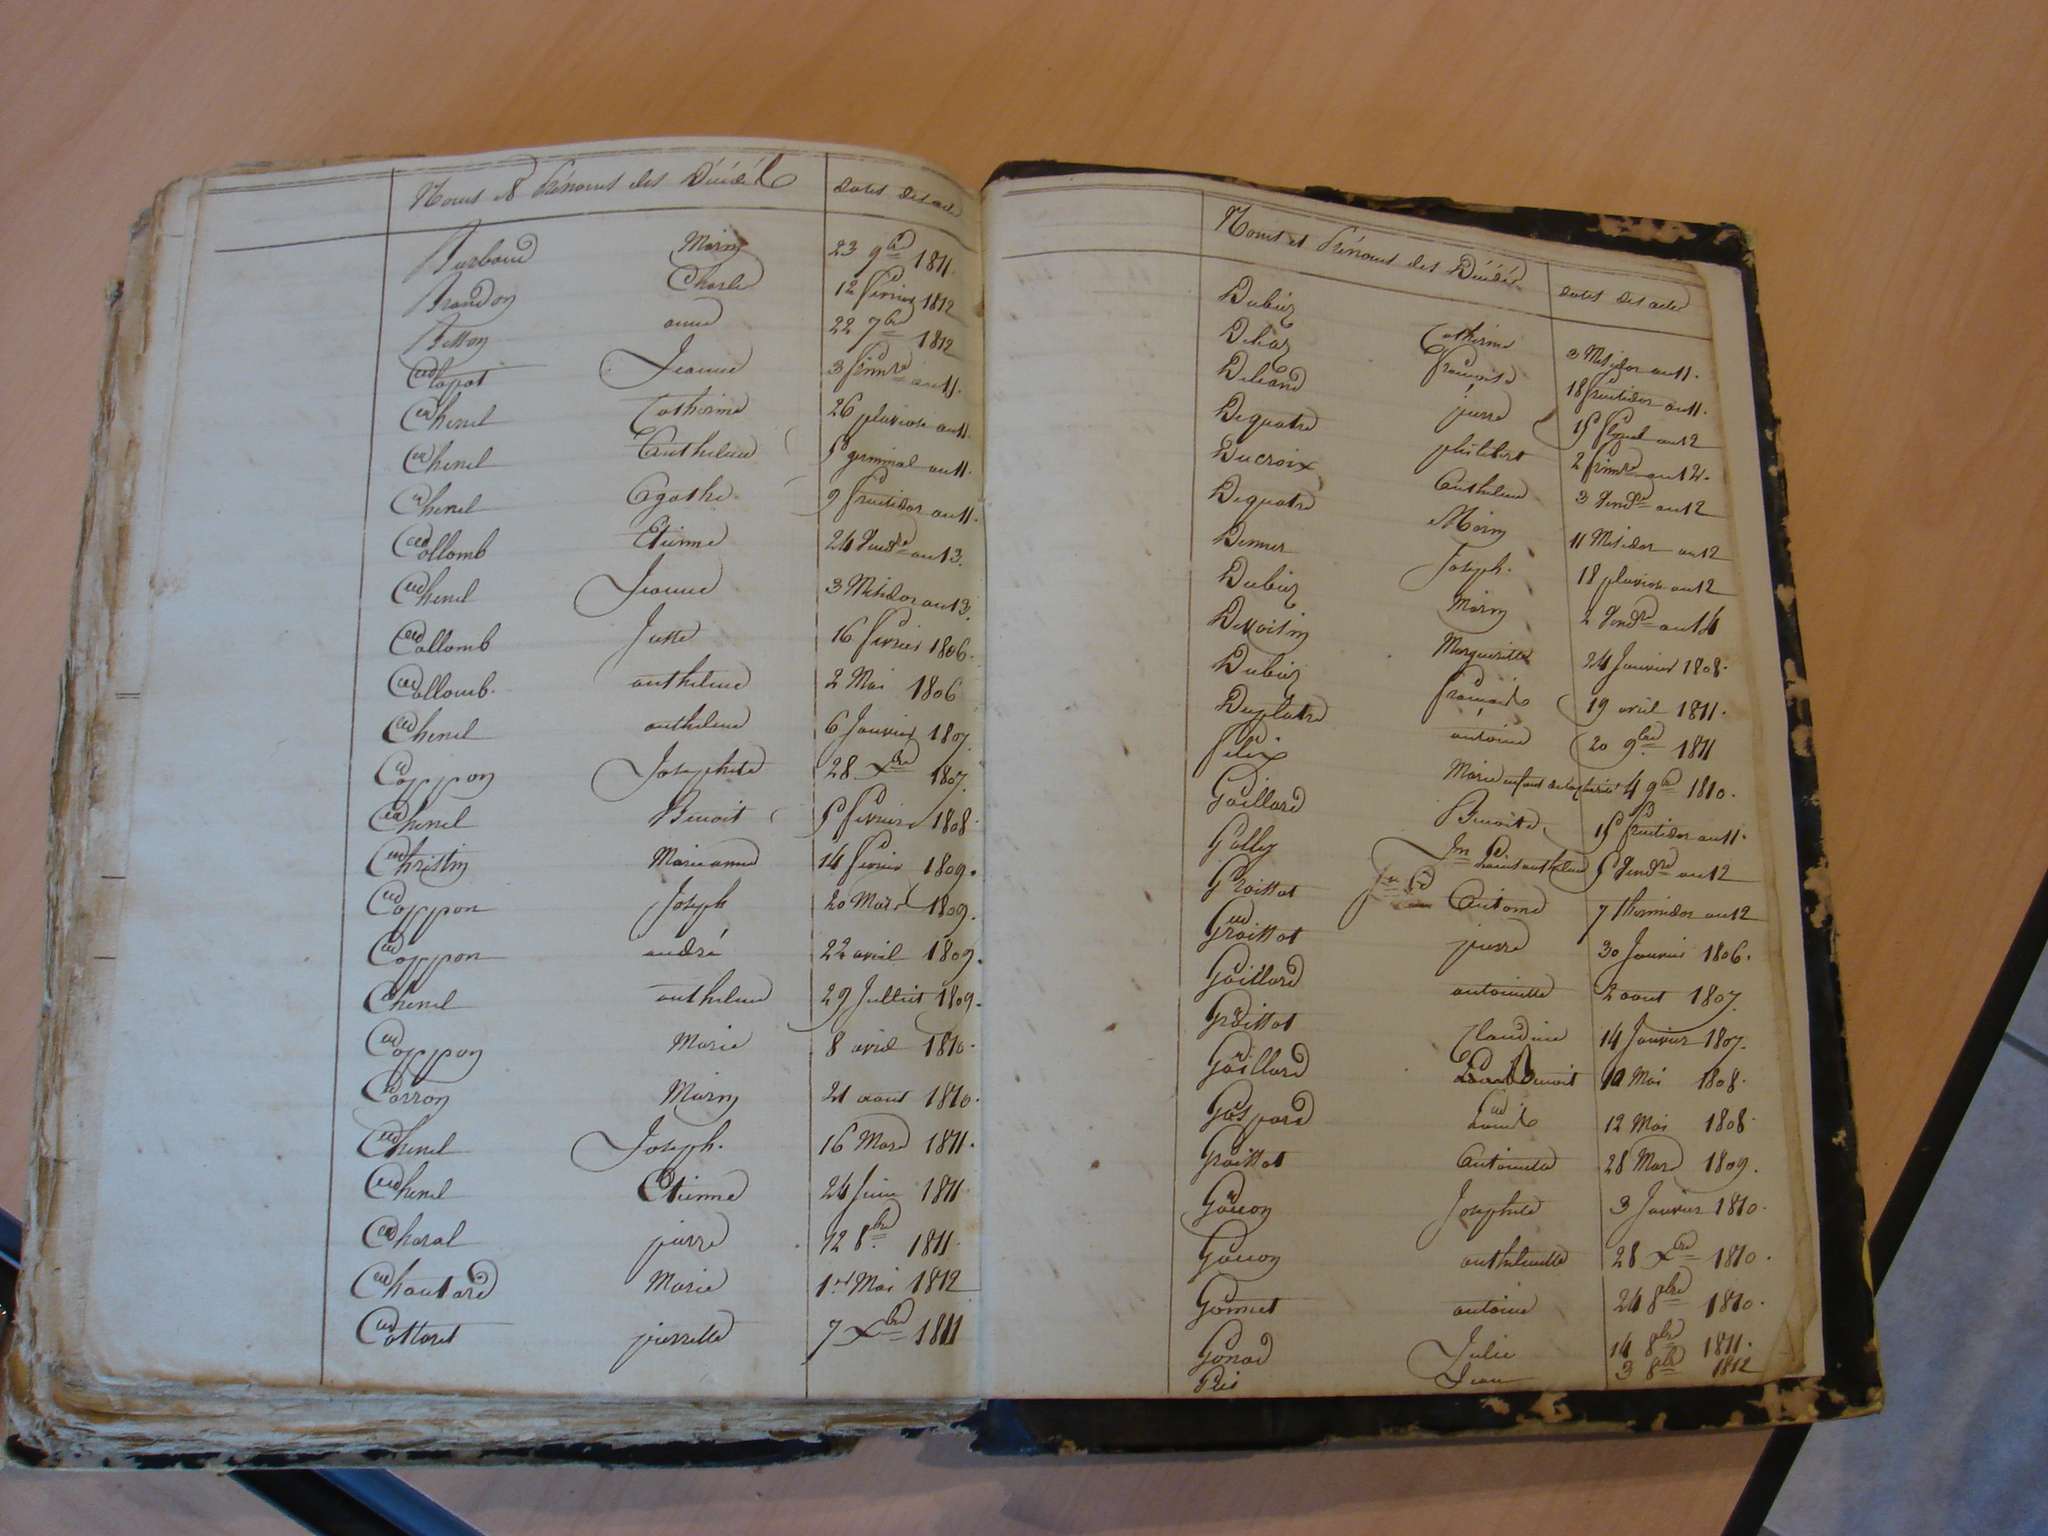 Noms et Prénoms des Décédés dates des actes
Burbaud Marin 23 9bre 1811.
Brandon Charle 12 fevrier 1812
Betton anne 22 7bre 1812
Clapot Jeanne 3 frimre an 11.
Chenel Catherine 26 pluviose an 11.
Chenel Anthelme 5 germinal an 11.
Chenel Agathe 9 fructidor an 11.
Collomb Etienne 24 Vendre an 13.
Chenel Jeanne 3 Messidor an 13.
Collomb Juste 16 fevrier 1806.
Collomb. anthelme 2 Mai 1806
Chenel anthelme 6 Janvier 1807.
Coppon Josephte 28 Xbre 1807.
Chenel Benoit 5 fevrier 1808.
Christin Marie anne 14 fevrier 1809.
Coppon Joseph 20 Mars 1809.
Coppon andré 22 avril 1809.
Chenel anthelme 29 Juillet 1809.
Coppon Marie 8 avril 1810.
Carron Marin 21 aout 1810.
Chenel Joseph. 16 Mars 1811.
Chenel Etienne 24 Juin 1811
Charal pierre 12 8bre 1811.
Chautard Marie 1er Mai 1812
Cottaret pierrette 7 Xbre 1811
Noms et Prénoms des Décédés dates des actes
Dubiez Catherine 3 Messidor an 11.
françoise 18 fructidor an 11.
pierre an 12
Dequatre philibert 2 frimre an 12.
Ducroix Anthelme 3 Vendre an 12
Dequatre Marin 11 Messidor an 12
Joseph. 18 pluviose an 12
Dubiez Marin 2 Vendre an 14
Marguerite 24 Janvier 1808.
Dubiez françoise 19 avril 1811.
Duplatre antoine 20 9bre 1811
felix Marie enfant de la charité 4 9bre 1810.
Gaillard Benoite 15 fructidor an 11.
Golley Jn Fs anthelme 5 Vendre an 12
Groittot Jn Fs Antoine 7 thermidor an 12
Groittot pierre 30 Janvier 1806.
Gaillard antoinette 2 aout 1807.
Groittot Claudine 14 Janvier 1807.
Gaillard Benoit Mai 1808.
Gaspard Louis 12 Mai 1808.
Groittot Antoinette 28 Mars 1809.
Goucon Josephte 3 Janvier 1810.
Goucon anthelmette 28 Xbre 1810.
Gonnet antoine 24 8bre 1810.
Gonod Julie 14 8bre 1811.
Jean 3 8bre 1812